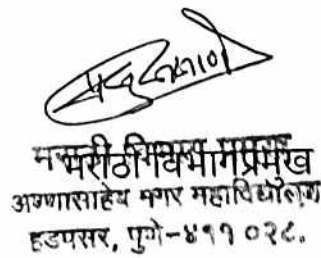 मराठी विभागप्रमुख
अण्णासाहेब मगर महाविद्यालय
हडपसर, पुणे-४११ ०२८.